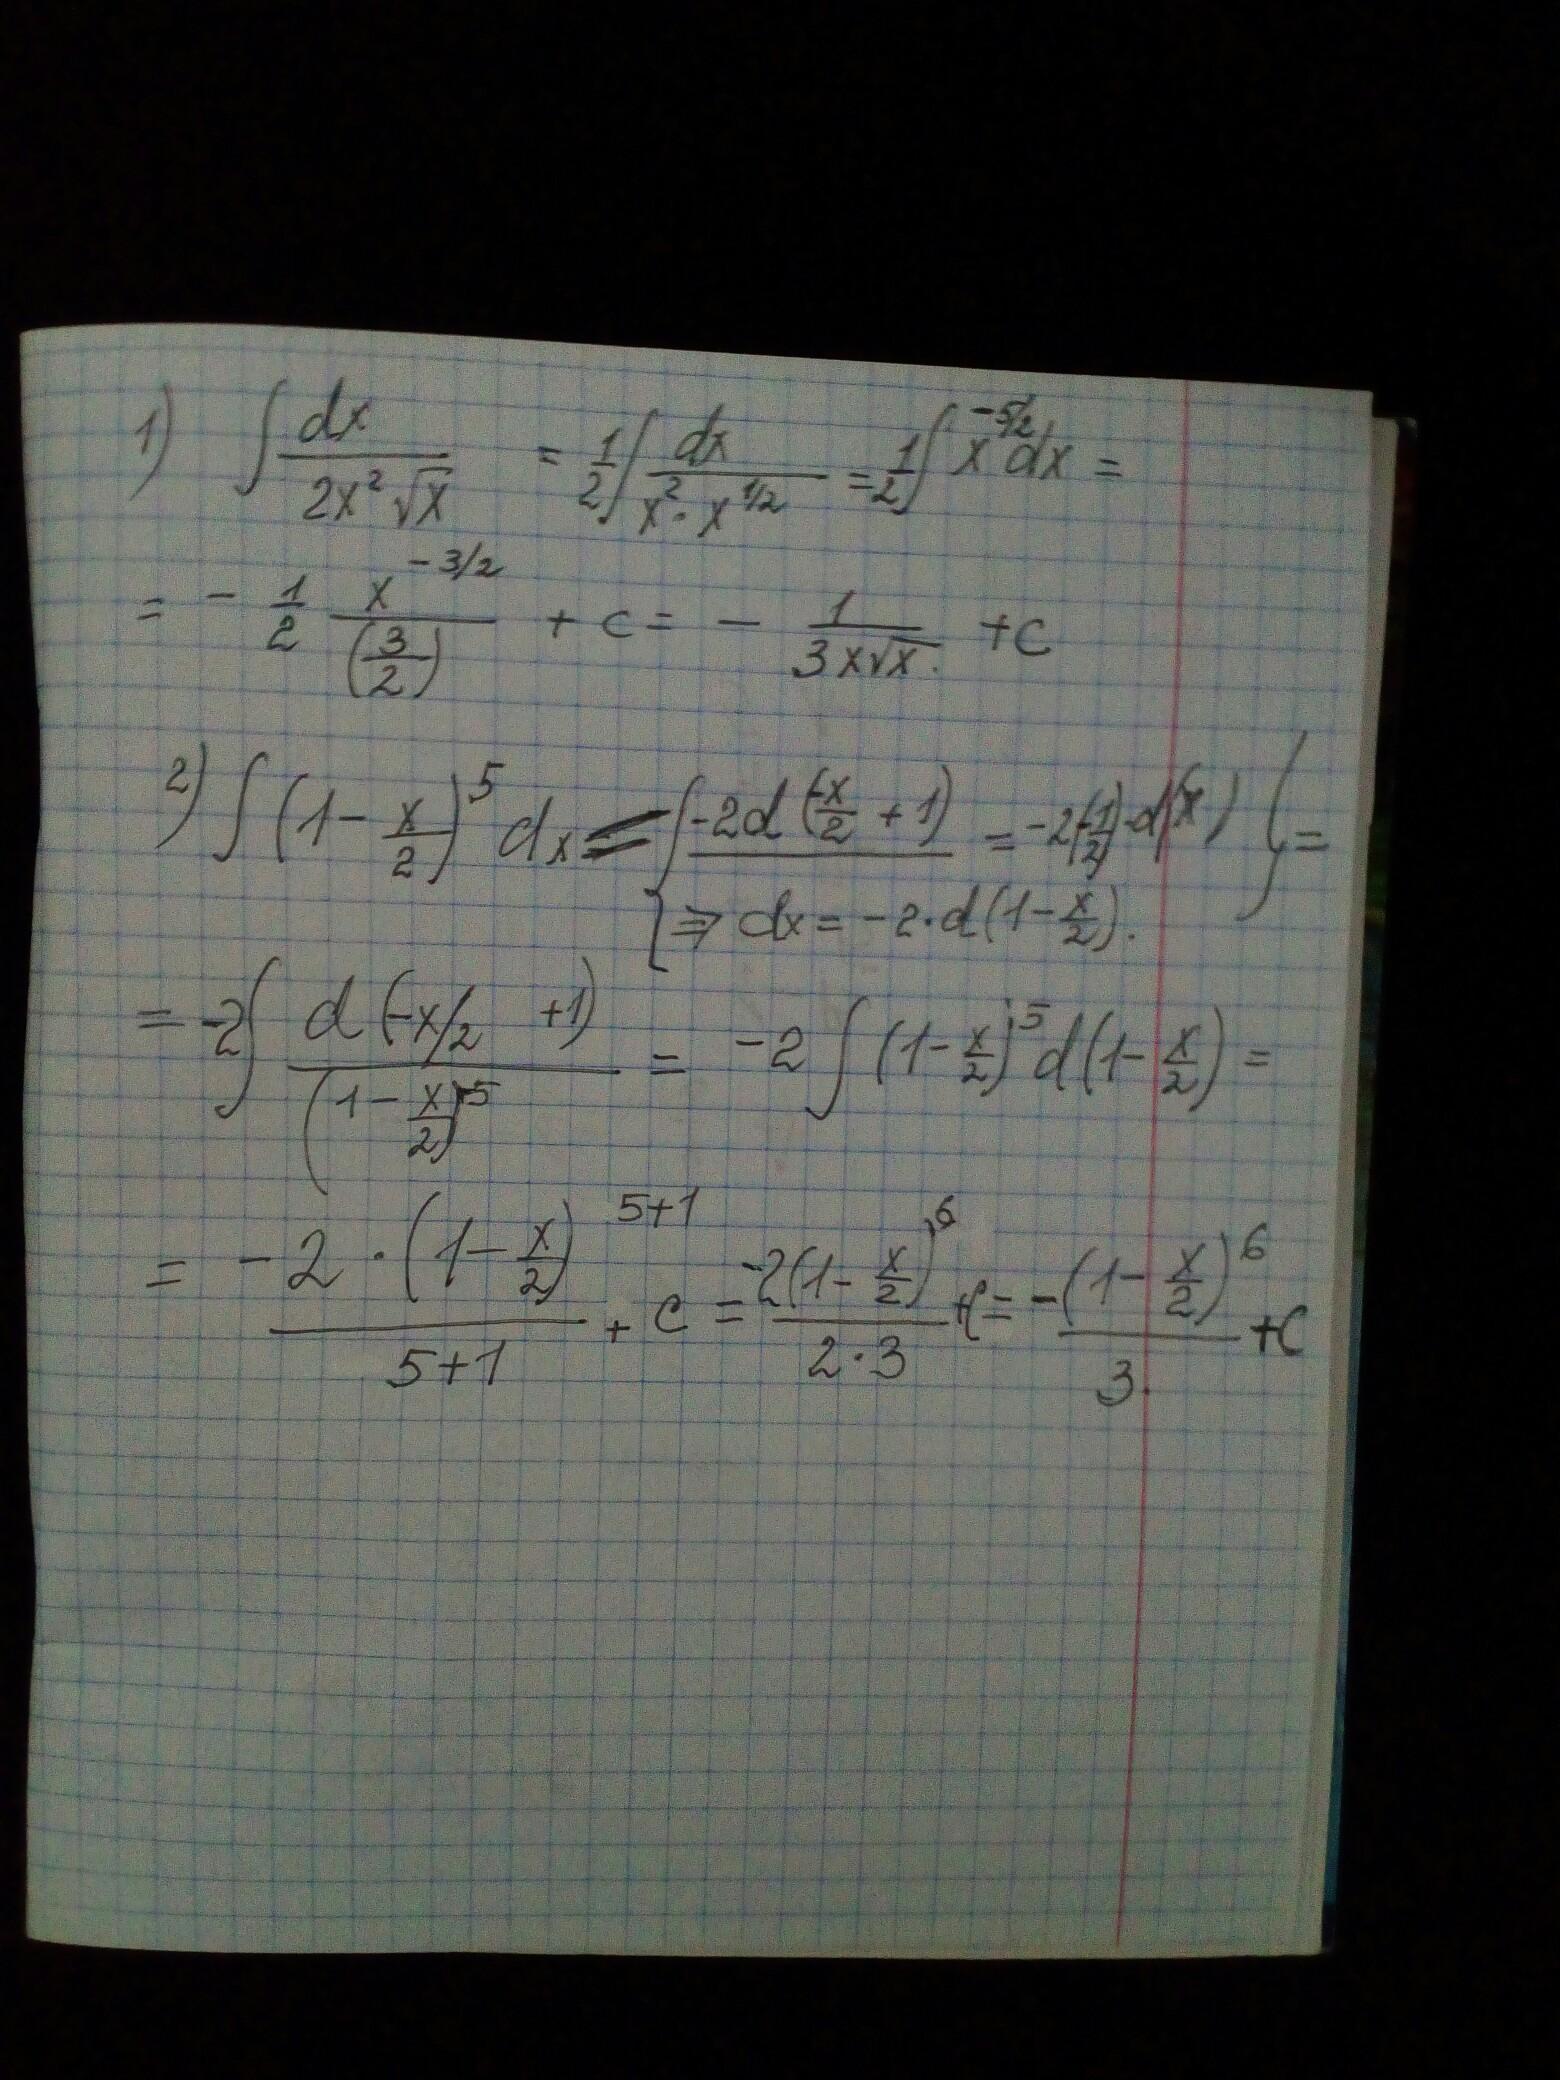 1) ∫ dx / (2x² √x) = 1/2 ∫ dx / (x² · x^(1/2)) = 1/2 ∫ x^(-5/2) dx =
= - 1/2 x^(-3/2) / (3/2) + c = - 1 / (3x√x) + c
2) ∫ (1 - x/2)^5 dx = { -2d(-x/2 + 1) = -2(-1/2) · d(x) } =
⇒ dx = -2 · d(1 - x/2).
= -2 ∫ d(-x/2 +1) / (1 - x/2)^(-5) = -2 ∫ (1 - x/2)^5 d(1 - x/2) =
= -2 · (1 - x/2)^(5+1) / (5+1) + c = -2(1 - x/2)^6 / (2·3) + c = -(1 - x/2)^6 / 3 + c